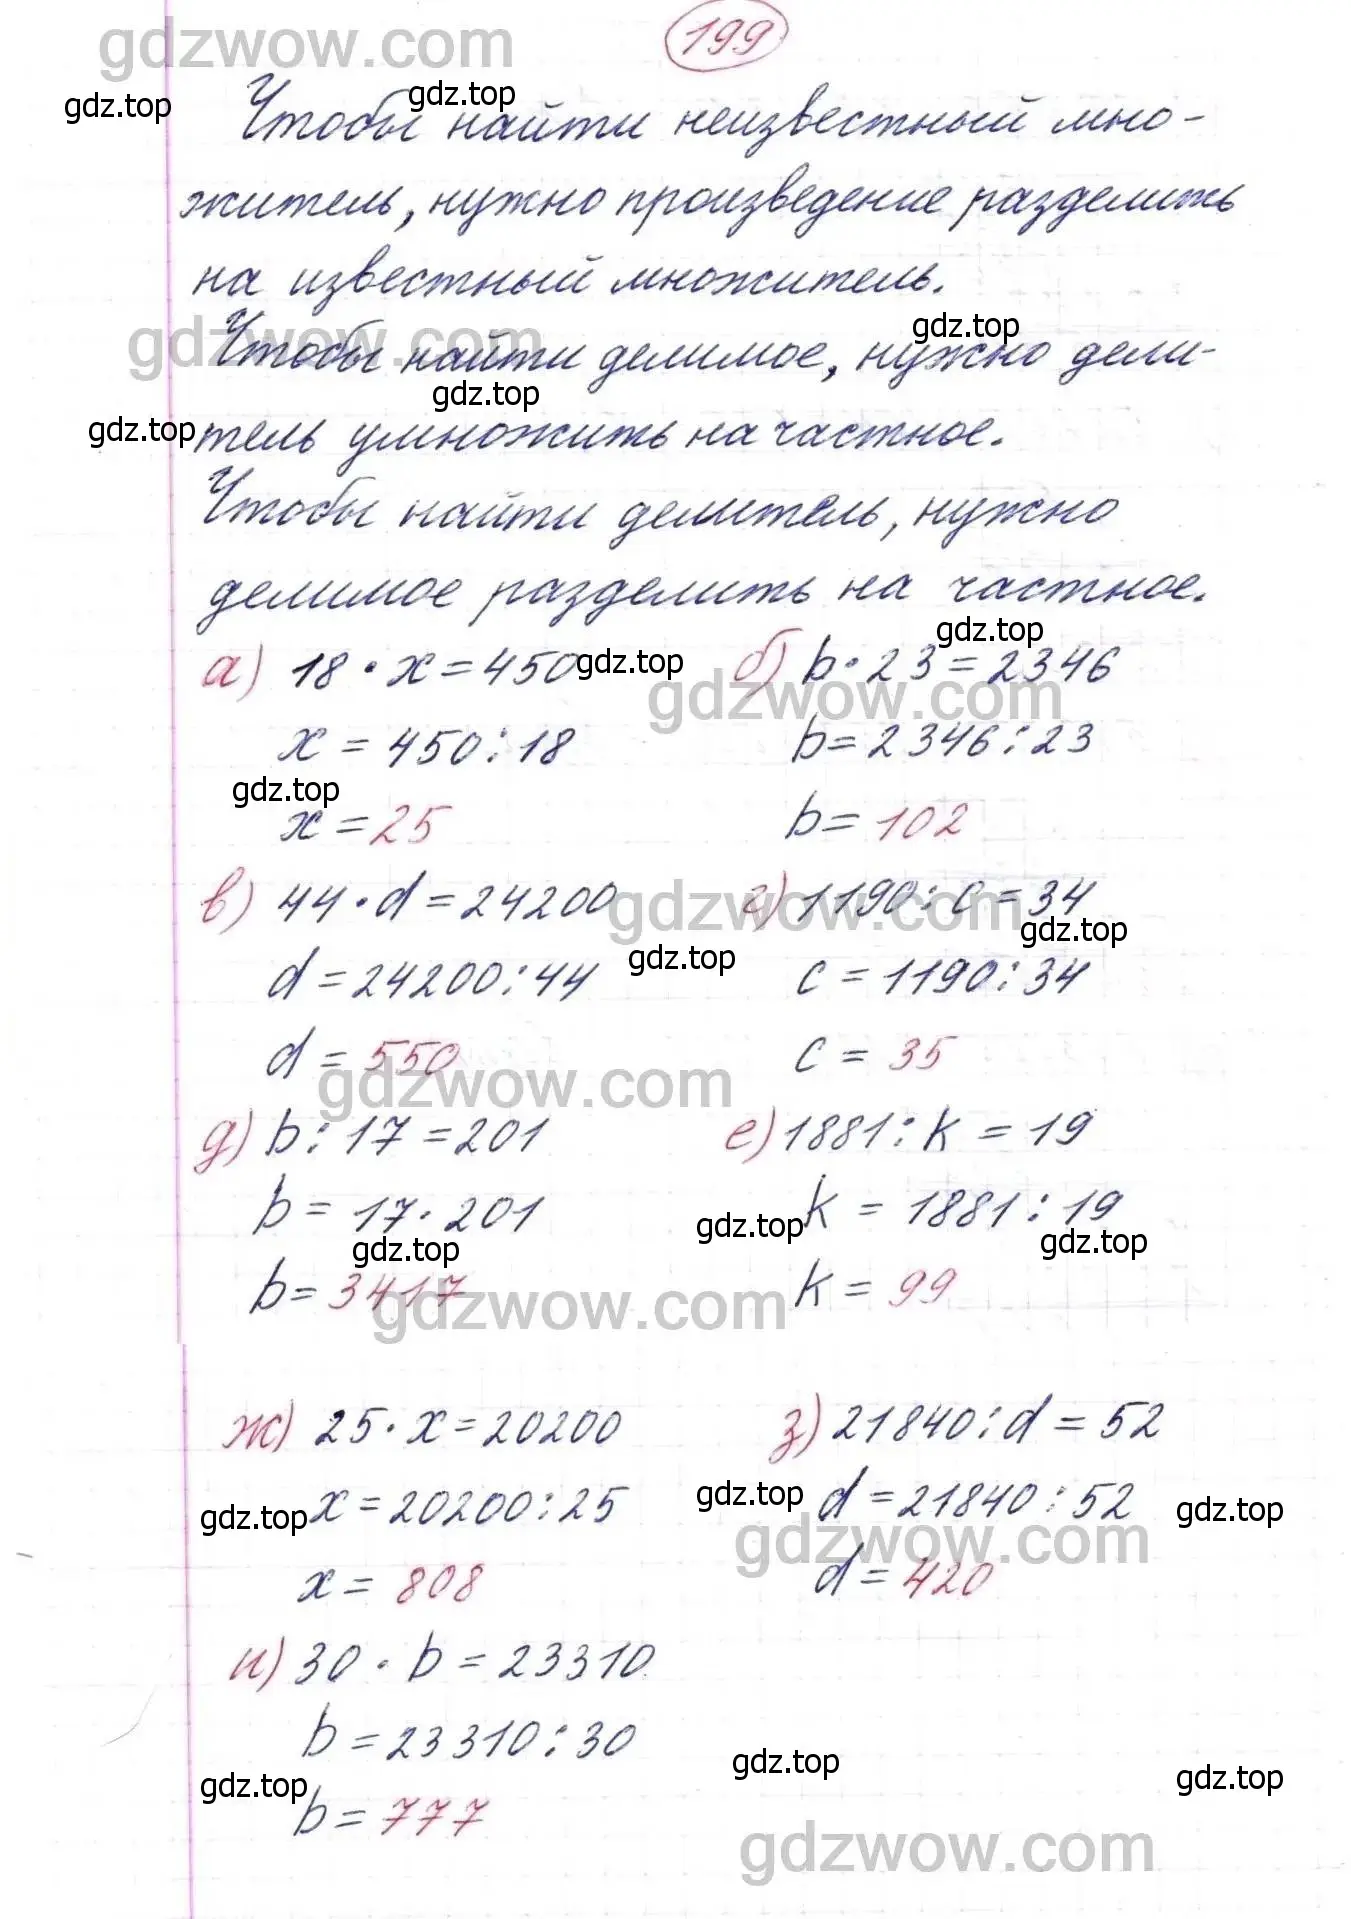 gdzwow.com
199
gdz.top
gdz.top
Чтобы найти неизвестный мно-
житель, нужно произведение разделить
на известный множитель.
gdzwow.com
gdz.top
Чтобы найти делимое, нужно дели-
gdz.top
gdz.top
тель умножить на частное.
Чтобы найти делитель, нужно
делимое разделить на частное.
gdz.top
а) 18 · x = 450
gdz.top
б) b · 23 = 2346
gdzwow.com
x = 450 : 18
b = 2346 : 23
gdz.top
x = 25
b = 102
в) 44 · d = 24200
gdzwow.com
г) 1190 : c = 34
gdz.top
gdz.top
d = 24200 : 44
c = 1190 : 34
d = 550
c = 35
gdzwow.com
д) b : 17 = 201
е) 1881 : k = 19
b = 17 · 201
k = 1881 : 19
gdz.top
gdz.top
gdz.top
b = 3417
k = 99
gdzwow.com
ж) 25 · x = 20200
з) 21840 : d = 52
x = 20200 : 25
d = 21840 : 52
gdz.top
gdz.top
gdz.top
gdzwow.com
x = 808
d = 420
и) 30 · b = 23310
b = 23310 : 30
gdz.top
gdz.top
gdz.top
b = 777
gdzwow.com